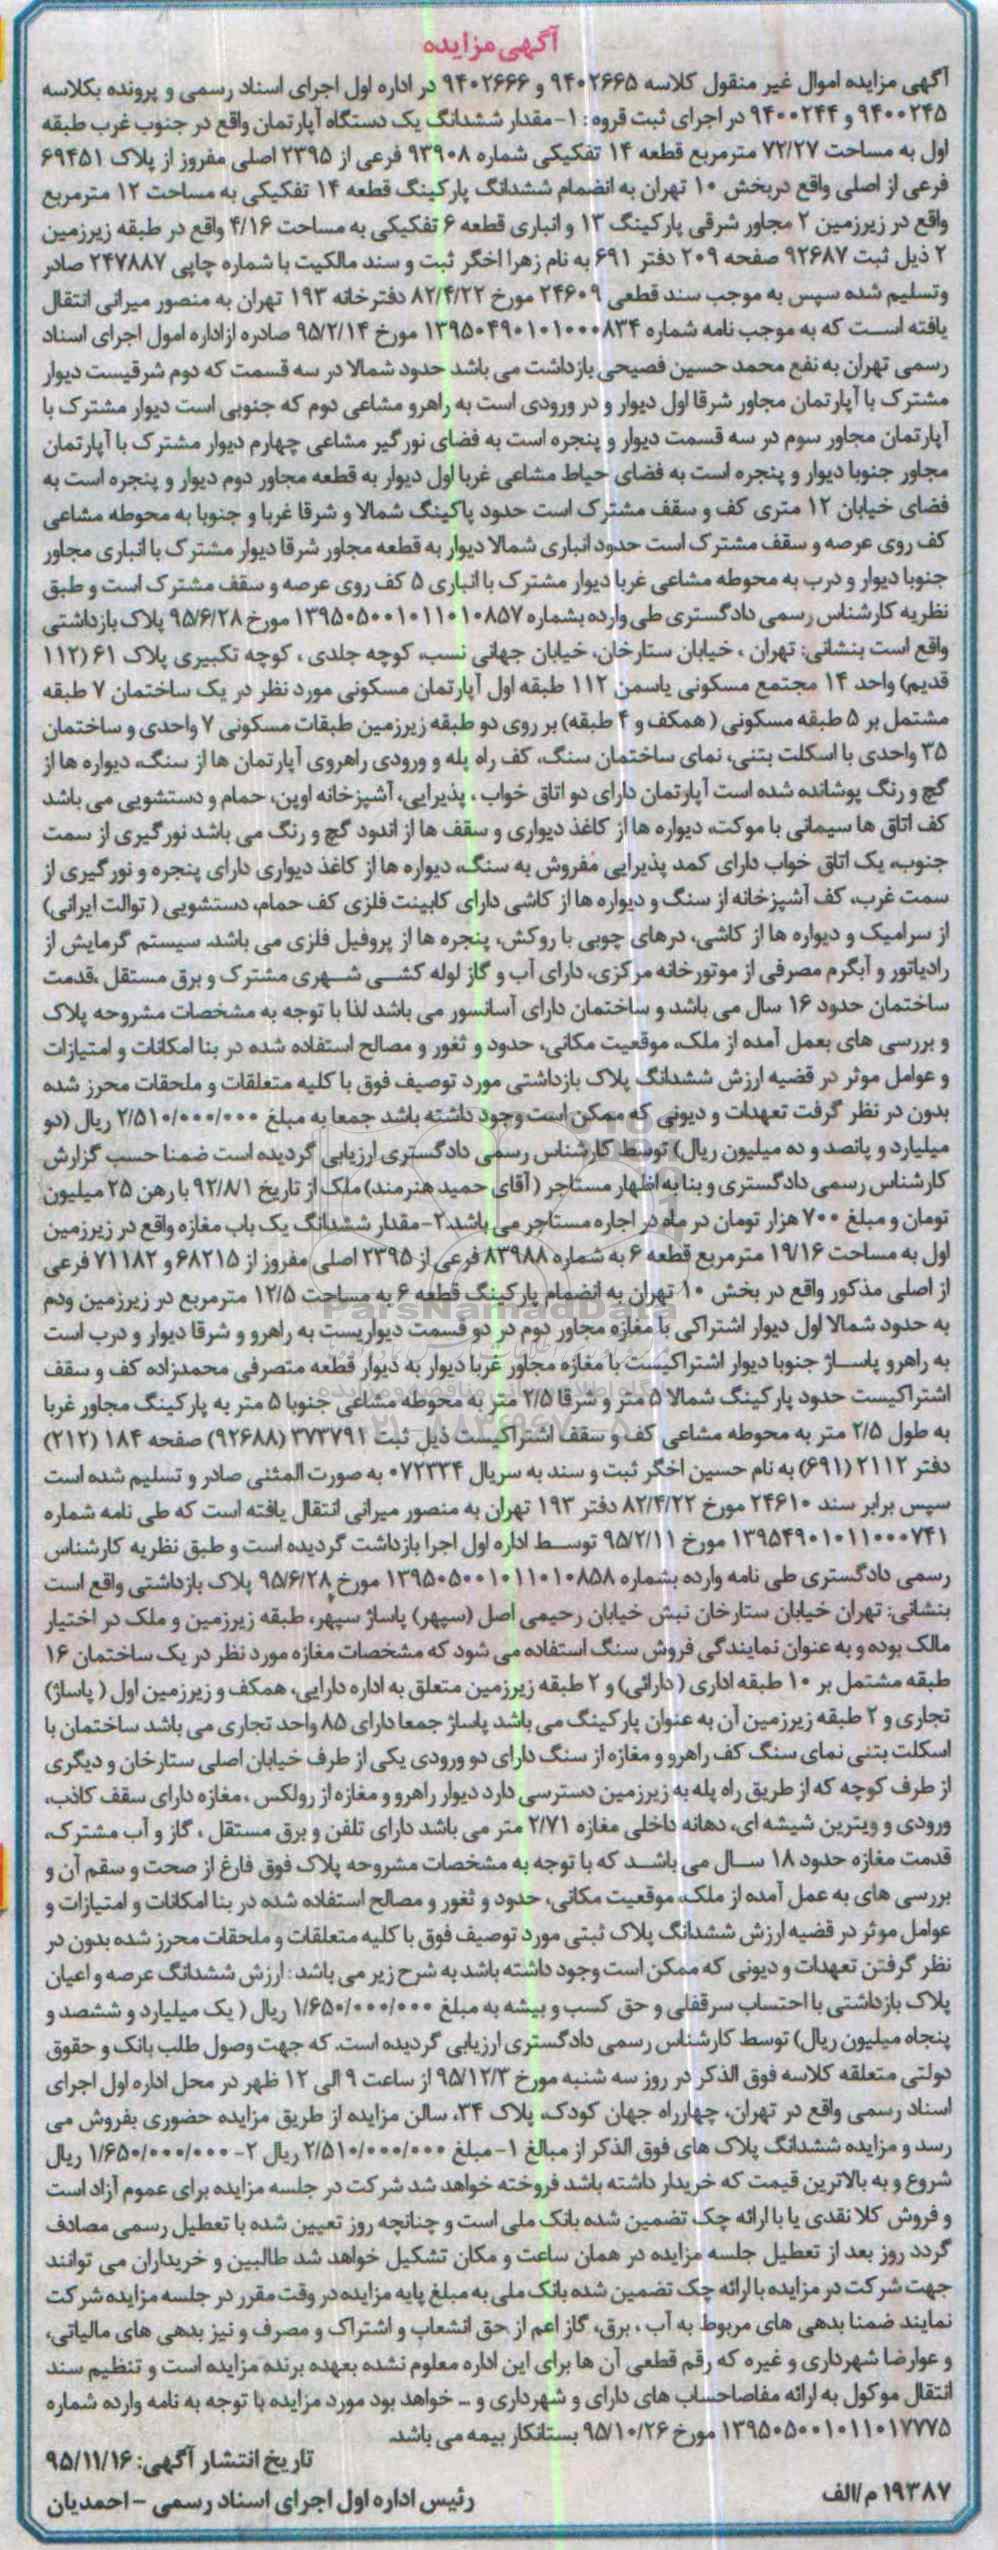 آگهی مزایده
آگهی مزایده اموال غیر منقول کلاسه ۹۴۰۲۶۶۵ و ۹۴۰۲۶۶۶ در اداره اول اجرای اسناد رسمی و پرونده بکلاسه
۹۴۰۰۲۴۵ و ۹۴۰۰۲۴۴ در اجرای ثبت قروه : ۱- مقدار ششدانگ یک دستگاه آپارتمان واقع در جنوب غرب طبقه
اول به مساحت ۷۲/۲۷ مترمربع قطعه ۱۴ تفکیکی شماره ۹۳۹۰۸ فرعی از ۲۳۹۵ اصلی مفروز از پلاک ۶۹۴۵۱
فرعی از اصلی واقع دربخش ۱۰ تهران به انضمام ششدانگ پارکینگ قطعه ۱۴ تفکیکی به مساحت ۱۲ مترمربع
واقع در زیرزمین ۲ مجاور شرقی پارکینگ ۱۳ و انباری قطعه ۶ تفکیکی به مساحت ۴/۱۶ واقع در طبقه زیرزمین
۲ ذیل ثبت ۹۲۶۸۷ صفحه ۲۰۹ دفتر ۶۹۱ به نام زهرا اخگر ثبت و سند مالکیت با شماره چاپی ۲۴۷۸۸۷ صادر
وتسلیم شده سپس به موجب سند قطعی ۲۴۶۰۹ مورخ ۸۲/۴/۲۲ دفترخانه ۱۹۳ تهران به منصور میرانی انتقال
یافته است که به موجب نامه شماره ۱۳۹۵۰۴۹۰۱۰۱۰۰۰۸۳۴ مورخ ۹۵/۲/۱۴ صادره ازاداره امول اجرای اسناد
رسمی تهران به نفع محمد حسین فصیحی بازداشت می باشد حدود شمالا در سه قسمت که دوم شرقیست دیوار
مشترک با آپارتمان مجاور شرقا اول دیوار و در ورودی است به راهرو مشاعی دوم که جنوبی است دیوار مشترک با
آپارتمان مجاور سوم در سه قسمت دیوار و پنجره است به فضای نورگیر مشاعی چهارم دیوار مشترک با آپارتمان
مجاور جنوبا دیوار و پنجره است به فضای حیاط مشاعی غربا اول دیوار به قطعه مجاور دوم دیوار و پنجره است به
فضای خیابان ۱۲ متری کف و سقف مشترک است حدود پاکینگ شمالا و شرقا غربا و جنوبا به محوطه مشاعی
کف روی عرصه و سقف مشترک است حدود انباری شمالا دیوار به قطعه مجاور شرقا دیوار مشترک با انباری مجاور
جنوبا دیوار و درب به محوطه مشاعی غربا دیوار مشترک با انباری ۵ کف روی عرصه و سقف مشترک است و طبق
نظریه کارشناس رسمی دادگستری طی وارده بشماره ۱۳۹۵۰۵۰۰۱۰۱۱۰۱۰۸۵۷ مورخ ۹۵/۶/۲۸ پلاک بازداشتی
واقع است بنشانی: تهران ، خیابان ستارخان، خیابان جهانی نسب، کوچه جلدی ، کوچه تکبیری پلاک ۶۱ (۱۱۲
قدیم) واحد ۱۴ مجتمع مسکونی یاسمن ۱۱۲ طبقه اول آپارتمان مسکونی مورد نظر در یک ساختمان ۷ طبقه
مشتمل بر ۵ طبقه مسکونی ( همکف و ۴ طبقه) بر روی دو طبقه زیرزمین طبقات مسکونی ۷ واحدی و ساختمان
۳۵ واحدی با اسکلت بتنی، نمای ساختمان سنگ، کف راه پله و ورودی راهروی آپارتمان ها از سنگ، دیواره ها از
گچ و رنگ پوشانده شده است آپارتمان دارای دو اتاق خواب ، پذیرایی، آشپزخانه اوپن، حمام و دستشویی می باشد
کف اتاق ها سیمانی با موکت، دیواره ها از کاغذ دیواری و سقف ها از اندود گچ و رنگ می باشد نورگیری از سمت
جنوب، یک اتاق خواب دارای کمد پذیرایی مفروش به سنگ، دیواره ها از کاغذ دیواری دارای پنجره و نورگیری از
سمت غرب، کف آشپزخانه از سنگ و دیواره ها از کاشی دارای کابینت فلزی کف حمام، دستشویی ( توالت ایرانی)
از سرامیک و دیواره ها از کاشی، درهای چوبی با روکش، پنجره ها از پروفیل فلزی می باشد. سیستم گرمایش از
رادیاتور و آبگرم مصرفی از موتورخانه مرکزی، دارای آب و گاز لوله کشی شهری مشترک و برق مستقل ،قدمت
ساختمان حدود ۱۶ سال می باشد و ساختمان دارای آسانسور می باشد لذا با توجه به مشخصات مشروحه پلاک
و بررسی های بعمل آمده از ملک، موقعیت مکانی، حدود و ثغور و مصالح استفاده شده در بنا امکانات و امتیازات
و عوامل موثر در قضیه ارزش ششدانگ پلاک بازداشتی مورد توصیف فوق با کلیه متعلقات و ملحقات محرز شده
بدون در نظر گرفت تعهدات و دیونی که ممکن است وجود داشته باشد جمعا به مبلغ ۲/۵۱۰/۰۰۰/۰۰۰ ریال (دو
میلیارد و پانصد و ده میلیون ریال) توسط کارشناس رسمی دادگستری ارزیابی گردیده است ضمنا حسب گزارش
کارشناس رسمی دادگستری و بنا به اظهار مستاجر ( آقای حمید هنرمند) ملک از تاریخ ۹۲/۸/۱ با رهن ۲۵ میلیون
تومان و مبلغ ۷۰۰ هزار تومان در ماه در اجاره مستاجر می باشد.۲- مقدار ششدانگ یک باب مغازه واقع در زیرزمین
اول به مساحت ۱۹/۱۶ مترمربع قطعه ۶ به شماره ۸۳۹۸۸ فرعی از ۲۳۹۵ اصلی مفروز از ۶۸۲۱۵ و ۷۱۱۸۲ فرعی
از اصلی مذکور واقع در بخش ۱۰ تهران به انضمام پارکینگ قطعه ۶ به مساحت ۱۲/۵ مترمربع در زیرزمین ودم
به حدود شمالا اول دیوار اشتراکی با مغازه مجاور دوم در دو قسمت دیواریست به راهرو و شرقا دیوار و درب است
به راهرو پاساژ جنوبا دیوار اشتراکیست با مغازه مجاور غربا دیوار به دیوار قطعه متصرفی محمدزاده کف و سقف
اشتراکیست حدود پارکینگ شمالا ۵ متر و شرقا ۲/۵ متر به محوطه مشاعی جنوبا ۵ متر به پارکینگ مجاور غربا
به طول ۲/۵ متر به محوطه مشاعی کف و سقف اشتراکیست ذیل ثبت ۳۷۳۷۹۱ (۹۲۶۸۸) صفحه ۱۸۴ (۲۱۲)
دفتر ۲۱۱۲ (۶۹۱) به نام حسین اخگر ثبت و سند به سریال ۰۷۲۳۳۴ به صورت المثنی صادر و تسلیم شده است
سپس برابر سند ۲۴۶۱۰ مورخ ۸۲/۴/۲۲ دفتر ۱۹۳ تهران به منصور میرانی انتقال یافته است که طی نامه شماره
۱۳۹۵۴۹۰۱۰۱۱۰۰۰۷۴۱ مورخ ۹۵/۲/۱۱ توسط اداره اول اجرا بازداشت گردیده است و طبق نظریه کارشناس
رسمی دادگستری طی نامه وارده بشماره ۱۳۹۵۰۵۰۰۱۰۱۱۰۱۰۸۵۸ مورخ ۹۵/۶/۲۸ پلاک بازداشتی واقع است
بنشانی: تهران خیابان ستارخان نبش خیابان رحیمی اصل (سپهر) پاساژ سپهر، طبقه زیرزمین و ملک در اختیار
مالک بوده و به عنوان نمایندگی فروش سنگ استفاده می شود که مشخصات مغازه مورد نظر در یک ساختمان ۱۶
طبقه مشتمل بر ۱۰ طبقه اداری ( دارائی) و ۲ طبقه زیرزمین متعلق به اداره دارایی، همکف و زیرزمین اول ( پاساژ)
تجاری و ۲ طبقه زیرزمین آن به عنوان پارکینگ می باشد پاساژ جمعا دارای ۸۵ واحد تجاری می باشد ساختمان با
اسکلت بتنی نمای سنگ کف راهرو و مغازه از سنگ دارای دو ورودی یکی از طرف خیابان اصلی ستارخان و دیگری
از طرف کوچه که از طریق راه پله به زیرزمین دسترسی دارد دیوار راهرو و مغازه از رولکس ، مغازه دارای سقف کاذب،
ورودی و ویترین شیشه ای، دهانه داخلی مغازه ۲/۷۱ متر می باشد دارای تلفن و برق مستقل ، گاز و آب مشترک،
قدمت مغازه حدود ۱۸ سال می باشد که با توجه به مشخصات مشروحه پلاک فوق فارغ از صحت و سقم آن و
بررسی های به عمل آمده از ملک، موقعیت مکانی، حدود و ثغور و مصالح استفاده شده در بنا امکانات و امتیازات و
عوامل موثر در قضیه ارزش ششدانگ پلاک ثبتی مورد توصیف فوق با کلیه متعلقات و ملحقات محرز شده بدون در
نظر گرفتن تعهدات و دیونی که ممکن است وجود داشته باشد به شرح زیر می باشد : ارزش ششدانگ عرصه و اعیان
پلاک بازداشتی با احتساب سرقفلی و حق کسب و پیشه به مبلغ ۱/۶۵۰/۰۰۰/۰۰۰ ریال ( یک میلیارد و ششصد و
پنجاه میلیون ریال) توسط کارشناس رسمی دادگستری ارزیابی گردیده است. که جهت وصول طلب بانک و حقوق
دولتی متعلقه کلاسه فوق الذکر در روز سه شنبه مورخ ۹۵/۱۲/۳ از ساعت ۹ الی ۱۲ ظهر در محل اداره اول اجرای
اسناد رسمی واقع در تهران، چهارراه جهان کودک، پلاک ۳۴، سالن مزایده از طریق مزایده حضوری بفروش می
رسد و مزایده ششدانگ پلاک های فوق الذکر از مبالغ ۱- مبلغ ۲/۵۱۰/۰۰۰/۰۰۰ ریال ۲- ۱/۶۵۰/۰۰۰/۰۰۰ ریال
شروع و به بالاترین قیمت که خریدار داشته باشد فروخته خواهد شد شرکت در جلسه مزایده برای عموم آزاد است
و فروش کلا نقدی یا با ارائه چک تضمین شده بانک ملی است و چنانچه روز تعیین شده با تعطیل رسمی مصادف
گردد روز بعد از تعطیل جلسه مزایده در همان ساعت و مکان تشکیل خواهد شد طالبین و خریداران می توانند
جهت شرکت در مزایده با ارائه چک تضمین شده بانک ملی به مبلغ پایه مزایده در وقت مقرر در جلسه مزایده شرکت
نمایند ضمنا بدهی های مربوط به آب ، برق، گاز اعم از حق انشعاب و اشتراک و مصرف و نیز بدهی های مالیاتی،
و عوارضا شهرداری و غیره که رقم قطعی آن ها برای این اداره معلوم نشده بعهده برنده مزایده است و تنظیم سند
انتقال موکول به ارائه مفاصاحساب های دارای و شهرداری و ... خواهد بود مورد مزایده با توجه به نامه وارده شماره
۱۳۹۵۰۵۰۰۱۰۱۱۰۱۷۷۷۵ مورخ ۹۵/۱۰/۲۶ بستانکار بیمه می باشد.
تاریخ انتشار آگهی: ۹۵/۱۱/۱۶
۱۹۳۸۷ م/الف
رئیس اداره اول اجرای اسناد رسمی - احمدیان
ParsNamadData